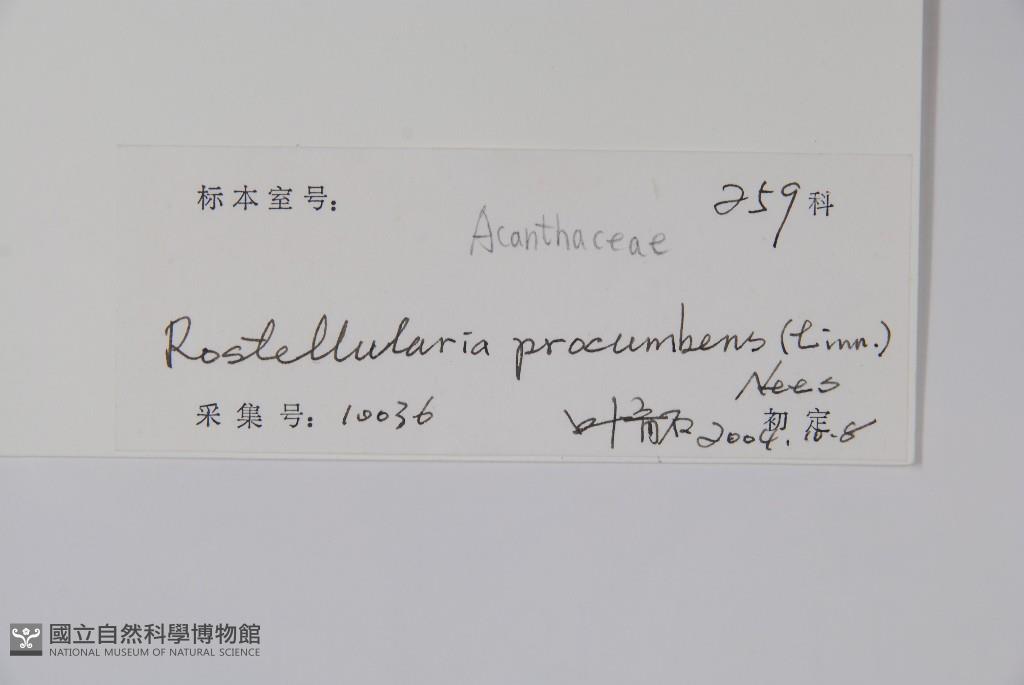 标本室号: 259科
Acanthaceae
Rostellularia procumbens (Linn.)
Nees
采集号: 10036 叶育石 2004.10.8 初定
國立自然科學博物館
NATIONAL MUSEUM OF NATURAL SCIENCE